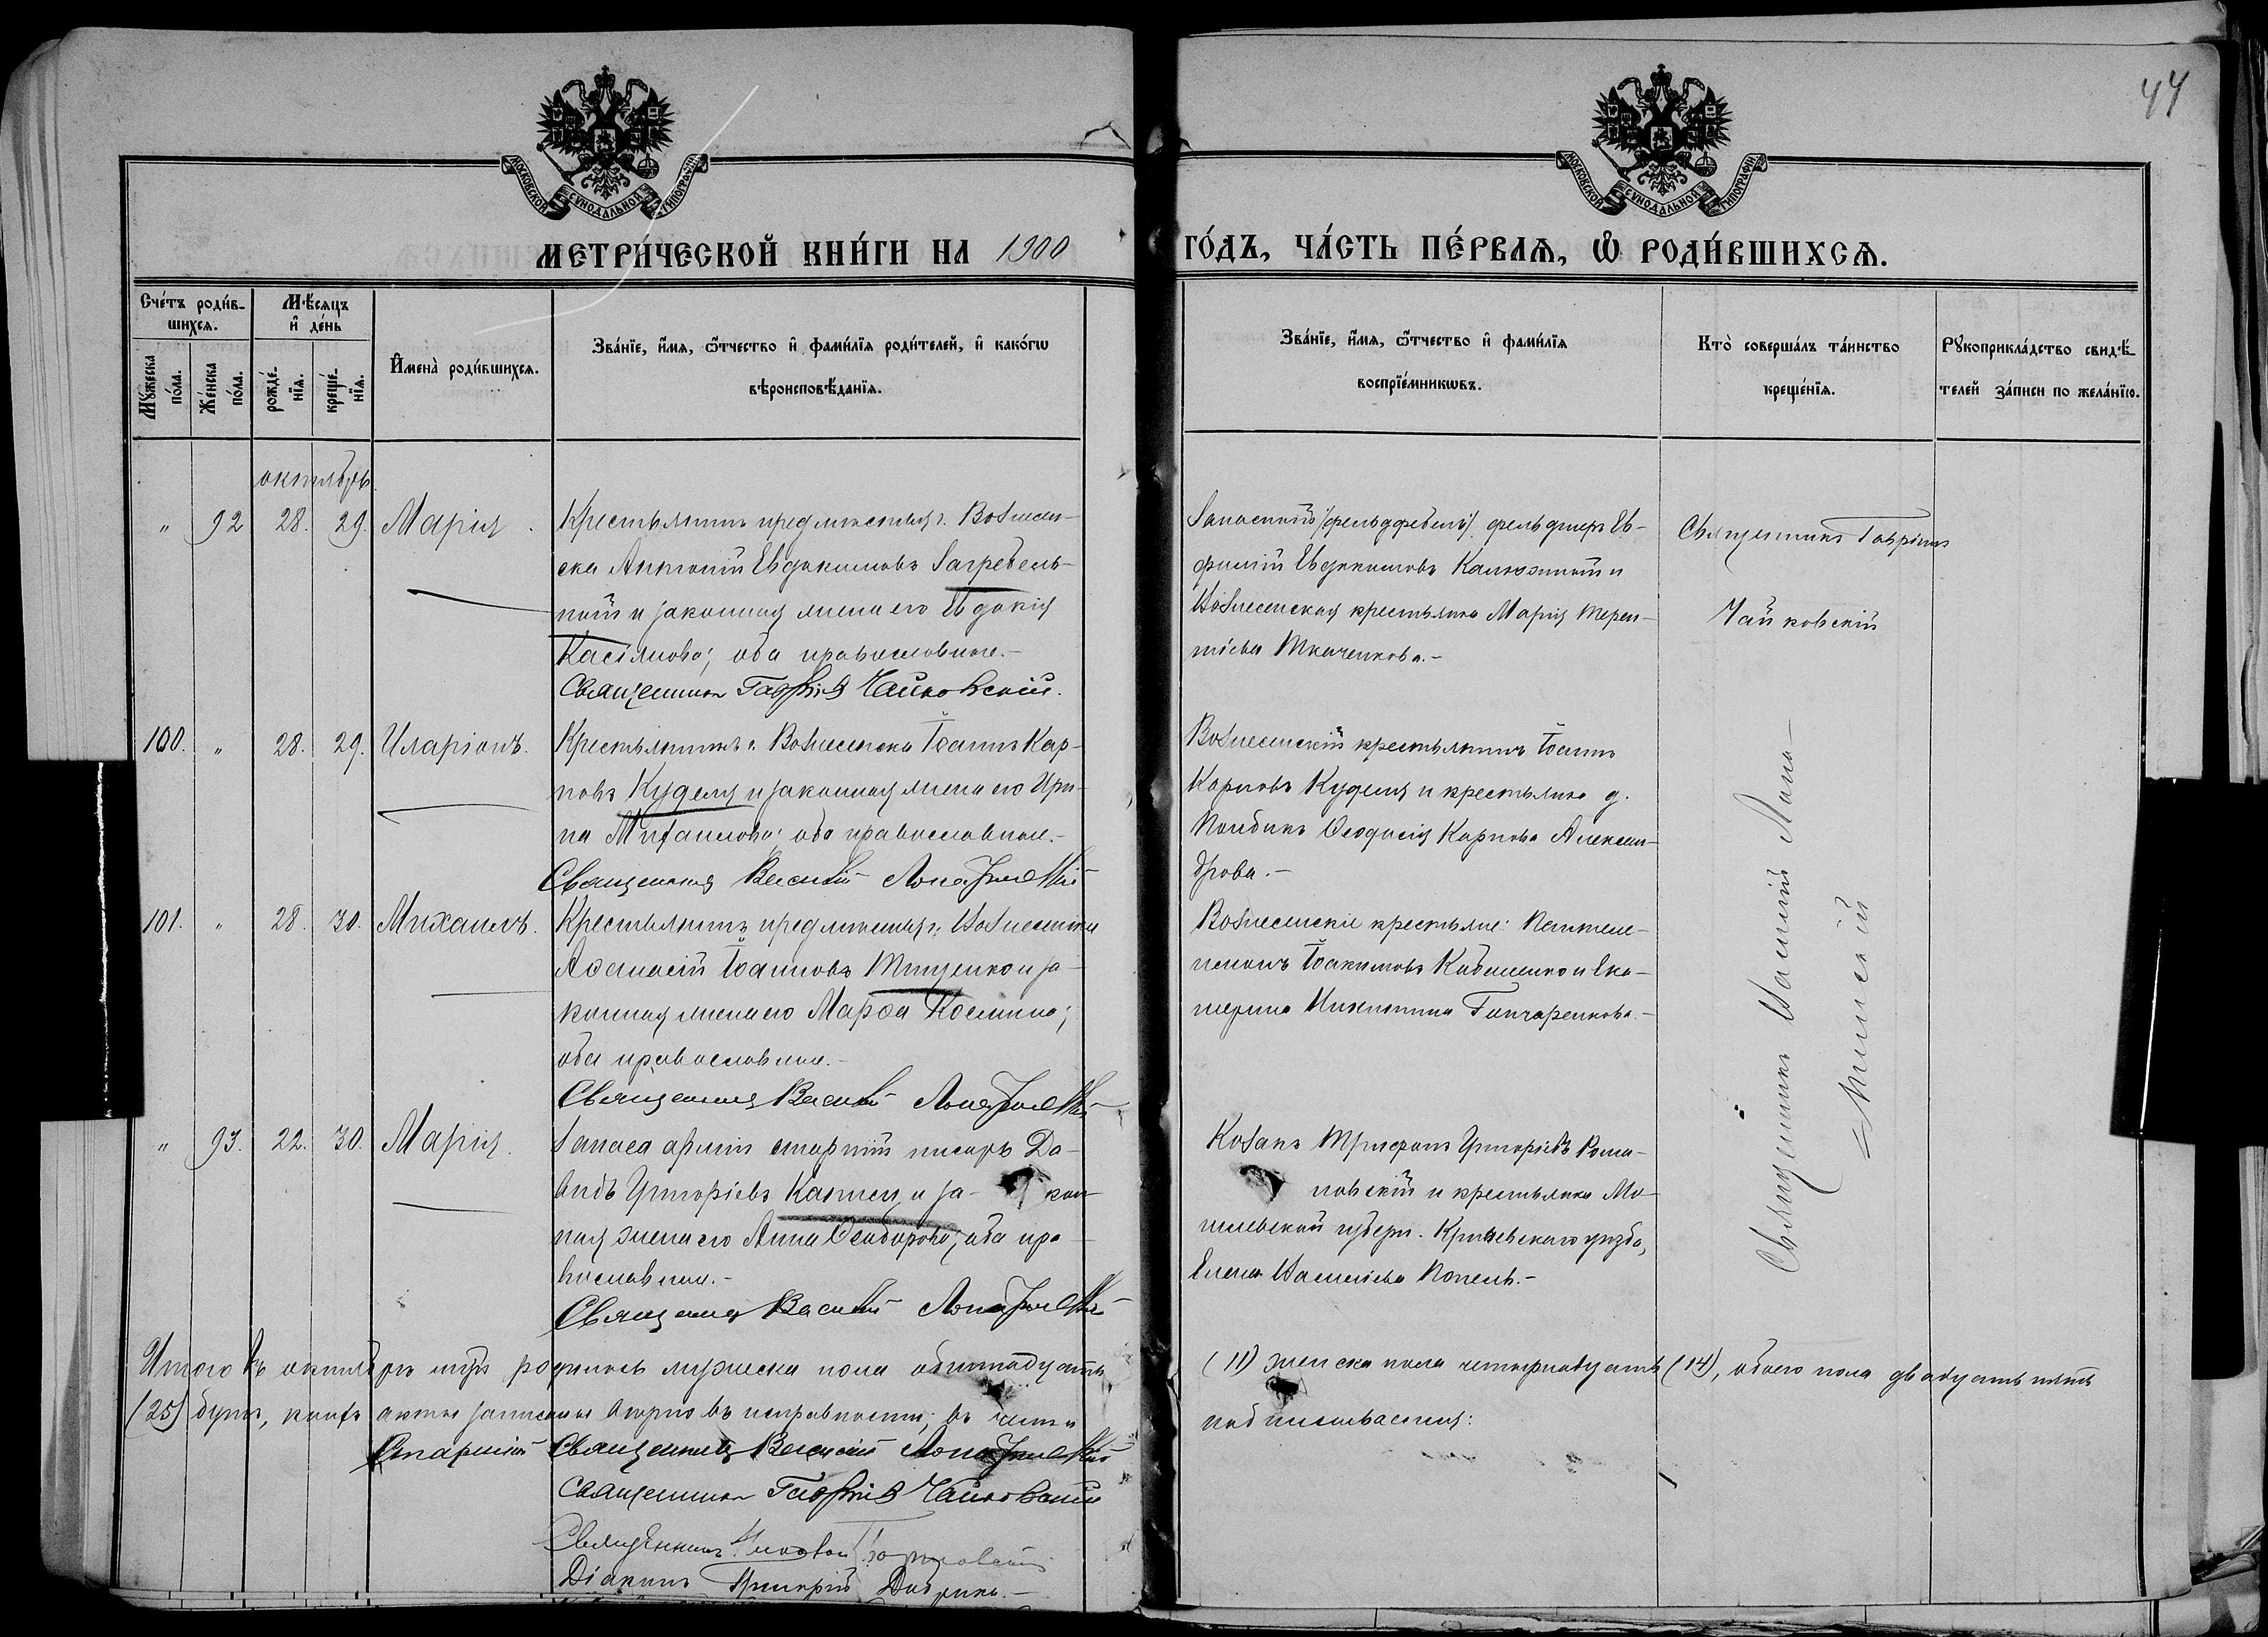 44
МОСКОВСКОЙ СѴНОДАЛЬНОЙ ТИПОГРАФІИ
МОСКОВСКОЙ СѴНОДАЛЬНОЙ ТИПОГРАФІИ
МЕТРИ́ЧЕСКОЙ КНИ́ГИ НА 1900
ГО́ДЪ, ЧА́СТЬ ПЕ́РВАѦ, Ѡ РОДИ́ВШИХСѦ.
Сче́тъ роди́в-
шихсѧ.
Мꙋ́жеска по́ла.
Же́нска по́ла.
Мѣ́сѧцъ
и҆ де́нь
рожде́-
нїѧ.
креще́-
нїѧ.
И҆мена̀ роди́вшихсѧ.
Зва́нїе, и҆́мѧ, ѻ҆́тчество и҆ фами́лїѧ роди́телей, и҆ како́гѡ
вѣроисповѣ́данїѧ.
Зва́нїе, и҆́мѧ, ѻ҆́тчество и҆ фами́лїѧ
воспрїе́мникѡвъ.
Кто̀ соверша́лъ та́инство
креще́нїѧ.
Рꙋкоприкла́дство свидѣ́-
телей за́писи по жела́нїю.
октябрь
" 92 28. 29. Марія.
Крестьянинъ предмѣстья г. Вознесен-
ска Антоній Евдокимовъ Загребель-
ный и законная жена его Евдокія
Касіянова; оба православные.-
Священникъ Гавріилъ Чайковскій.
Запасный /фельдфебель/ фельдшеръ Ев-
фимій Евдокимовъ Калюжный и
Вознесенская крестьянка Марія Терен-
тіева Ткаченкова.-
Священникъ Гавріилъ
Чайковскій
100. " 28. 29. Иларіонъ.
Крестьянинъ г. Вознесенска Іоаннъ Кар-
повъ Куделя и законная жена его Ири-
на Михаилова; оба православные.-
Священникъ Василій
Вознесенскій крестьянинъ Іоаннъ
Карповъ Куделя и крестьянка д.
Ѳеодосія Карпова Алексан-
дрова.-
101. " 28. 30. Михаилъ.
Крестьянинъ предмѣстья г. Вознесенска
Аѳанасій Іоанновъ Тищенко и за-
конная жена его Марѳа Космина;
оба православные.-
Священникъ Василій
Вознесенскіе крестьяне: Пантеле-
имонъ Іоакимовъ и Ека-
терина Никитина Гончаренкова.-
Священникъ Василій
" 93. 22. 30. Марія.
Запаса арміи старшій писарь Да-
видъ Григоріевъ и за- кон-
ная жена его Анна Ѳеодорова; оба пра-
вославные.-
Священникъ Василій
Козакъ Трифонъ Григоріевъ Рома-
новскій и крестьянка Мо-
гилевской губерн. уѣзда,
Елена Василіева
Итого въ октябрѣ мѣс. родилось мужеска пола одиннадцать
(11) женска пола четырнадцать (14), обоего пола двадцать пять
(25) душъ, коихъ акты записаны вѣрно въ исправности; въ чемъ и
подписываемся:
Старшій Священникъ Василій
Священникъ Гавріилъ Чайковскій
Священникъ
Діаконъ Григорій